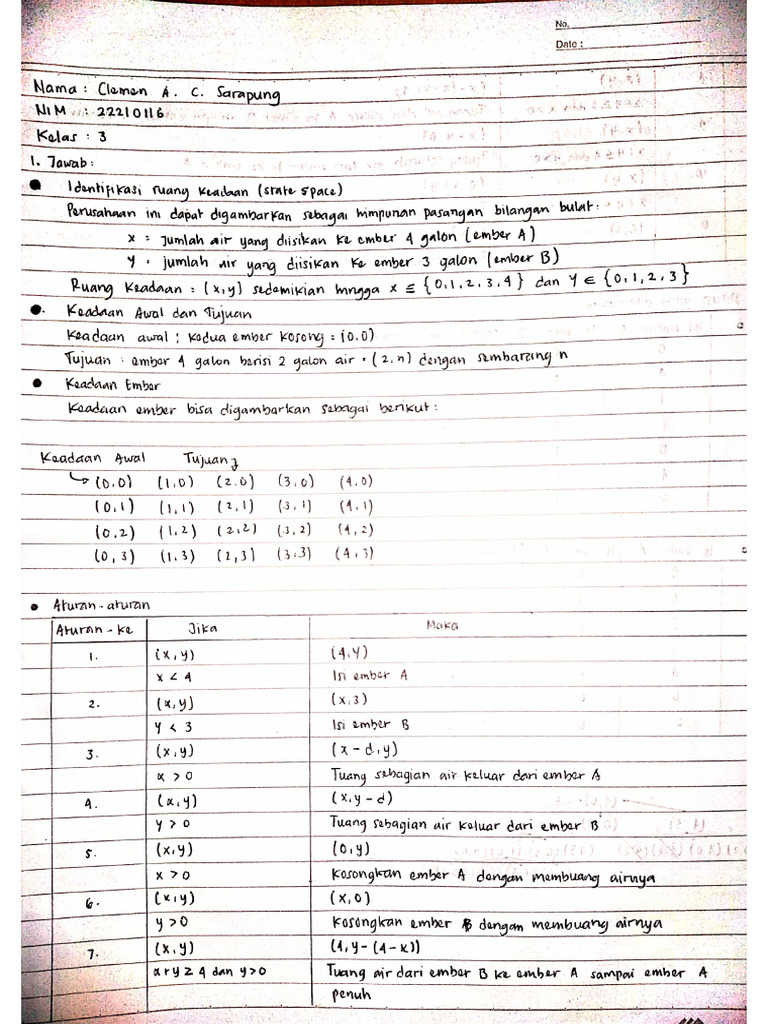 No.
Date :
Nama : Clemen A. C. Sarapung
NIM : 22210116
Kelas : 3
1. Jawab :
• Identifikasi ruang keadaan (state space)
Perusahaan ini dapat digambarkan sebagai himpunan pasangan bilangan bulat :
x = jumlah air yang diisikan ke ember 4 galon (ember A)
y = jumlah air yang diisikan ke ember 3 galon (ember B)
Ruang Keadaan : (x,y) sedemikian hingga x ∈ {0,1,2,3,4} dan y ∈ {0,1,2,3}
• Keadaan Awal dan Tujuan
Keadaan awal : Kedua ember kosong = (0.0)
Tujuan : ember 4 galon berisi 2 galon air = (2,n) dengan sembarang n
• Keadaan Ember
Keadaan ember bisa digambarkan sebagai berikut :
Keadaan Awal Tujuan
(0.0) (1,0) (2.0) (3,0) (4.0)
(0,1) (1,1) (2,1) (3,1) (4,1)
(0.2) (1,2) (2,2) (3,2) (4,2)
(0,3) (1.3) (2,3) (3.3) (4,3)
• Aturan-aturan
Aturan-ke Jika Maka
1. (x,y) (4,y)
x < 4 Isi ember A
2. (x,y) (x,3)
y < 3 Isi ember B
3. (x,y) (x-d,y)
x > 0 Tuang sebagian air keluar dari ember A
4. (x,y) (x,y-d)
y > 0 Tuang sebagian air keluar dari ember B
5. (x,y) (0,y)
x > 0 Kosongkan ember A dengan membuang airnya
6. (x,y) (x,0)
y > 0 Kosongkan ember B dengan membuang airnya
7. (x,y) (4,y-(4-x))
x+y ≥ 4 dan y > 0 Tuang air dari ember B ke ember A sampai ember A
penuh